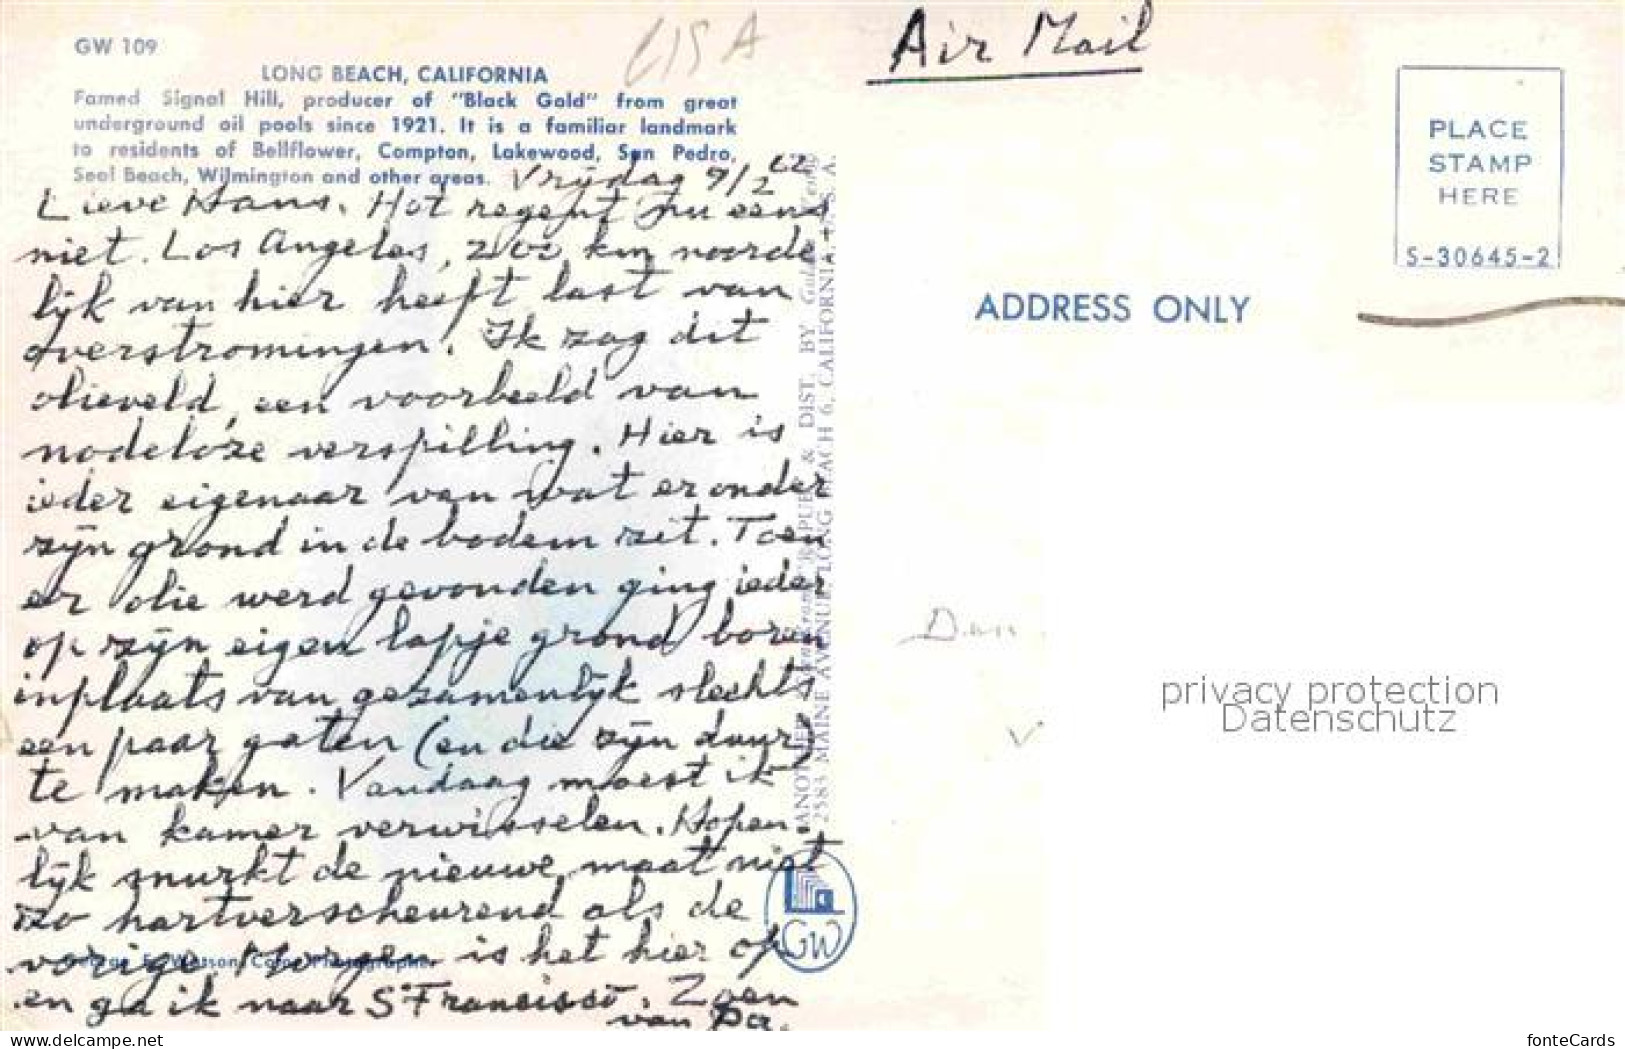 GW 109
LONG BEACH, CALIFORNIA
Famed Signal Hill, producer of "Black Gold" from great
underground oil pools since 1921. It is a familiar landmark
to residents of Bellflower, Compton, Lakewood, San Pedro,
Seal Beach, Wilmington and other areas.
USA
Vrijdag 9/2 62
Lieve Hans. Het regent nu eens
niet. Los Angeles, 200 km noorde
lijk van hier heeft last van
overstromingen! Ik zag dit
olieveld, een voorbeeld van
nodeloze verspilling. Hier is
ieder eigenaar van wat er onder
zijn grond in de bodem zit. Toen
er olie werd gevonden ging ieder
op zijn eigen lapje grond boren
inplaats van gezamenlijk slechts
een paar gaten (en die zijn duur)
te maken. Vandaag moest ik
van kamer verwisselen. Hopen-
lijk snurkt de nieuwe maat niet
zo hartverscheurend als de
vorige. Morgen is het hier op
en ga ik naar S Francisco. Zoen
van Pa.
PUB. & DIST. BY
2583 MAINE AVENUE, LONG BEACH 6, CALIFORNIA, U. S. A.
LA
GW
Air Mail
PLACE
STAMP
HERE
S-30645-2
ADDRESS ONLY
Den
privacy protection
Datenschutz
www.delcampe.net
fonteCards